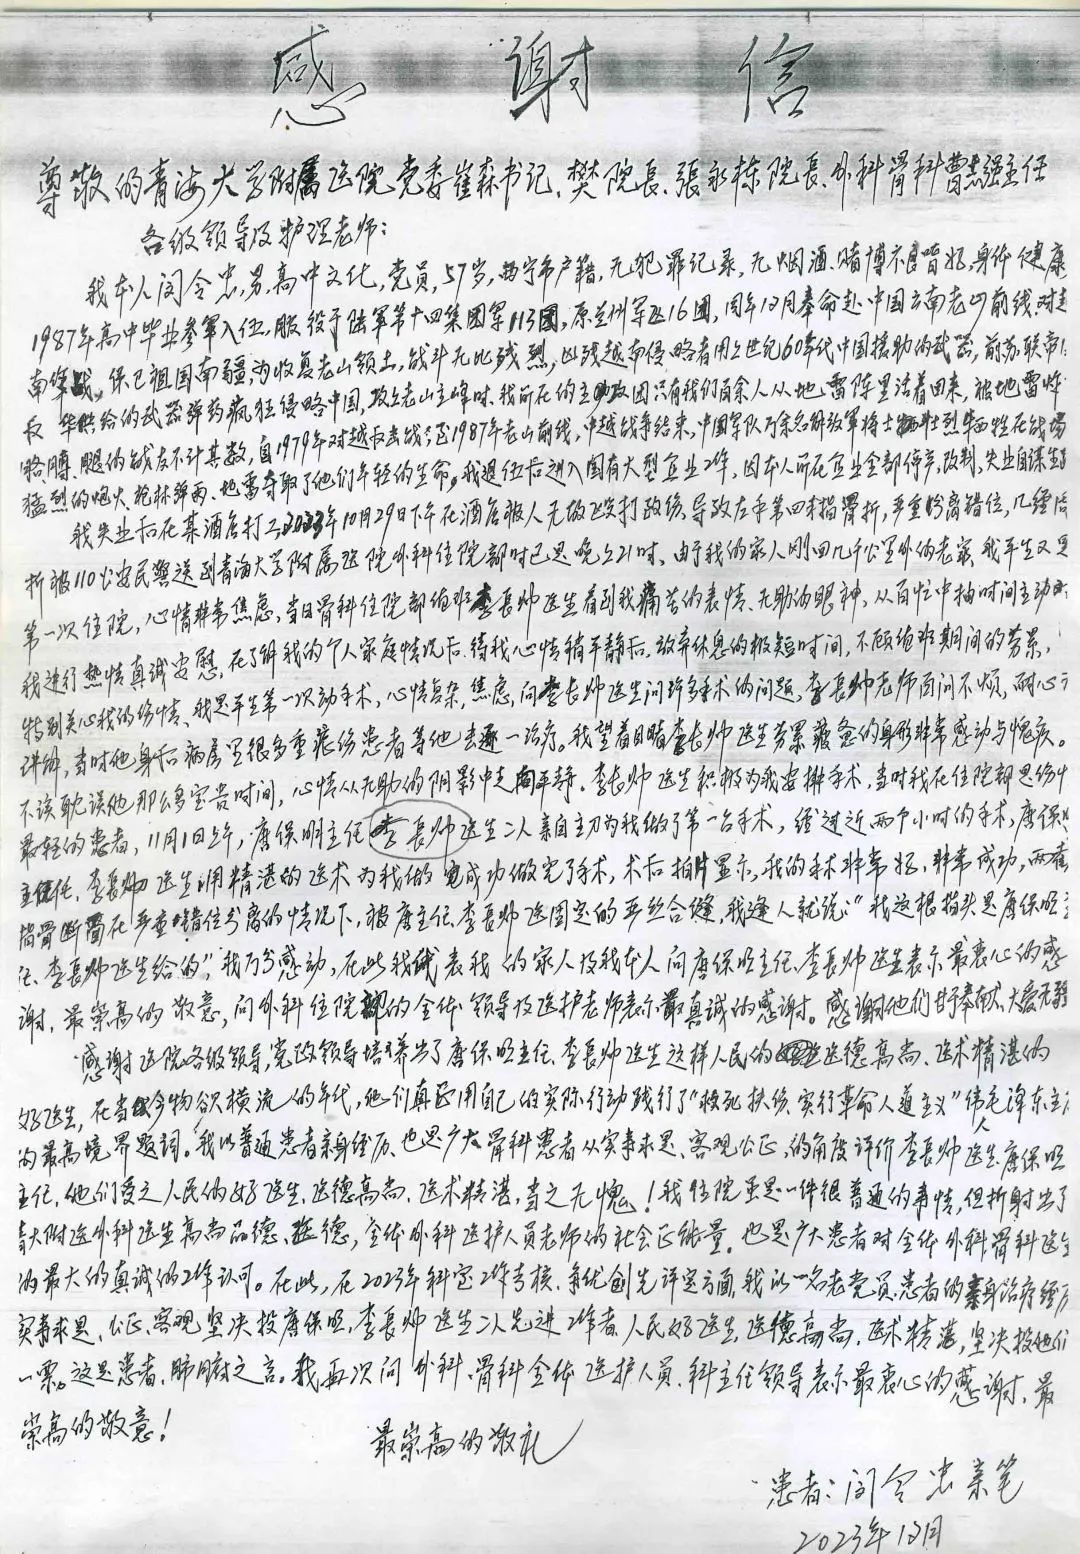 感谢信
尊敬的青海大学附属医院党委崔森书记、樊院长、張永栋院長、外科骨科曹志强主任
各级领导及护理老师：
我本人闵令忠，男，高中文化，党员，57岁，西宁市户籍，无犯罪记录，无烟酒、赌博不良嗜好，身体健康
1987年高中毕业参軍入伍，服役于陆軍第十四集团軍113團，原兰州軍区16團，同年12月奉命赴中国云南老山前线，对越
南作战，保卫祖国南疆，为收复老山领土，战斗无比残烈，凶残越南侵略者用上世纪60年代中国援助的武器，前苏联帝
反华供给的武器弹药疯狂侵略中国，攻占老山主峰时，我所在的主攻团只有我们百余人从地雷阵里活着回来，被地雷炸
胳膊、腿的战友不计其数，自1979年对越反击战至1987年老山前线，中越战争结束，中国军队万余名解放軍将士壮烈牺牲在战场
猛烈的炮火、枪林弹雨、地雷夺取了他们年轻的生命。我退伍后进入国有大型企业工作，因本人所在企业全部停产，改制，失业自谋
我失业后在某酒店打工2023年10月29日下午在酒店被人无故殴打致伤，导致左手第四末指骨折，严重分离错位，几经
折被110公安民警送到青海大学附属医院外科住院部时已是晚上21时，由于我的家人刚回几千公里外的老家，我平生又是
第一次住院，心情非常焦虑，当日骨科住院部值班李長帅医生看到我痛苦的表情、无助的眼神，从百忙中抽时间主动
我进行热情真诚安慰，在了解我的个人家庭情况后，待我心情稍平静后，放弃休息的极短时间，不顾值班期间的劳累，
特别关心我的伤情，我是平生第一次动手术，心情复杂，焦虑，问李長帅医生问许多手术的问题，李長帅老师百问不烦，耐心
讲解，当时他身后病房里很多重症伤患者等他去逐一治疗。我望着目睹李長帅医生劳累疲惫的身形非常感动与愧疚。
不该耽误他那么多宝贵时间，心情从无助的阴影中走向平静。李長帅医生积极为我安排手术，当时我在住院部是伤情
最轻的患者，11月1日上午，唐保明主任李長帅医生二人亲自主刀为我做了第一台手术，经过近两个小时的手术，唐保
主任、李長帅医生用精湛的医术为我做完成功做完了手术，术后拍片显示，我的手术非常好，非常成功，两截
指骨断骨在严重错位分离的情况下，被唐主任、李長帅医固定的严丝合缝，我逢人就说：“我这根指头是唐保明主
任、李長帅医生给的”，我万分感动，在此我代表我的家人及我本人向唐保明主任、李長帅医生表示最衷心的感
谢，最崇高的敬意，向外科住院部的全体领导及医护老师表示最真诚的感谢。感谢他们甘于奉献，大爱无疆
感谢医院各级领导，党政领导培养出了唐保明主任、李長帅医生这样人民的医德高尚、医术精湛的
好医生，在当今物欲横流的年代，他们真正用自己的实际行动践行了“救死扶伤，实行革命人道主义”伟人毛泽东主
的最高境界题词。我以普通患者亲身经历，也是广大骨科患者从实事求是、客观公正、的角度评价李長帅医生唐保明
主任，他们受之人民的好医生，医德高尚，医术精湛，当之无愧！我住院虽是一件很普通的事情，但折射出了
青大附医外科医生高尚品德、医德，全体外科医护人员老师的社会正能量。也是广大患者对全体外科骨科医生
的最大的真诚的工作认可。在此，在2023年科室工作考核、争优创先评定方面，我以一名老党员，患者的亲身治疗经历
实事求是、公正、客观坚决投唐保明，李長帅医生二人先进工作者，人民好医生，医德高尚，医术精湛，坚决投他们
一票。这是患者，肺腑之言。我再次向外科、骨科全体医护人员、科主任领导表示最衷心的感谢，最
崇高的敬意！
最崇高的敬礼
患者：闵令忠亲笔
2023年12月